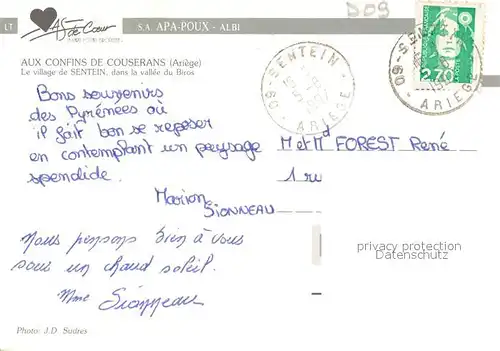 D09
LT As de Cœur S.A. APA-POUX - ALBI
AUX CONFINS DE COUSERANS (Ariège)
Le village de SENTEIN, dans la vallée du Biros
SENTEIN
09 - ARIEGE
2,70
09 - ARIEGE
Bons souvenirs
des Pyrénées où
il fait bon se reposer
en contemplant un paysage
spendide.
Marion
SIONNEAU
M et Md FOREST René
1 ru
Nous pensons bien à vous
sous un chaud soleil.
Mme Sionneau
privacy protection
Datenschutz
Photo: J.D Sudres